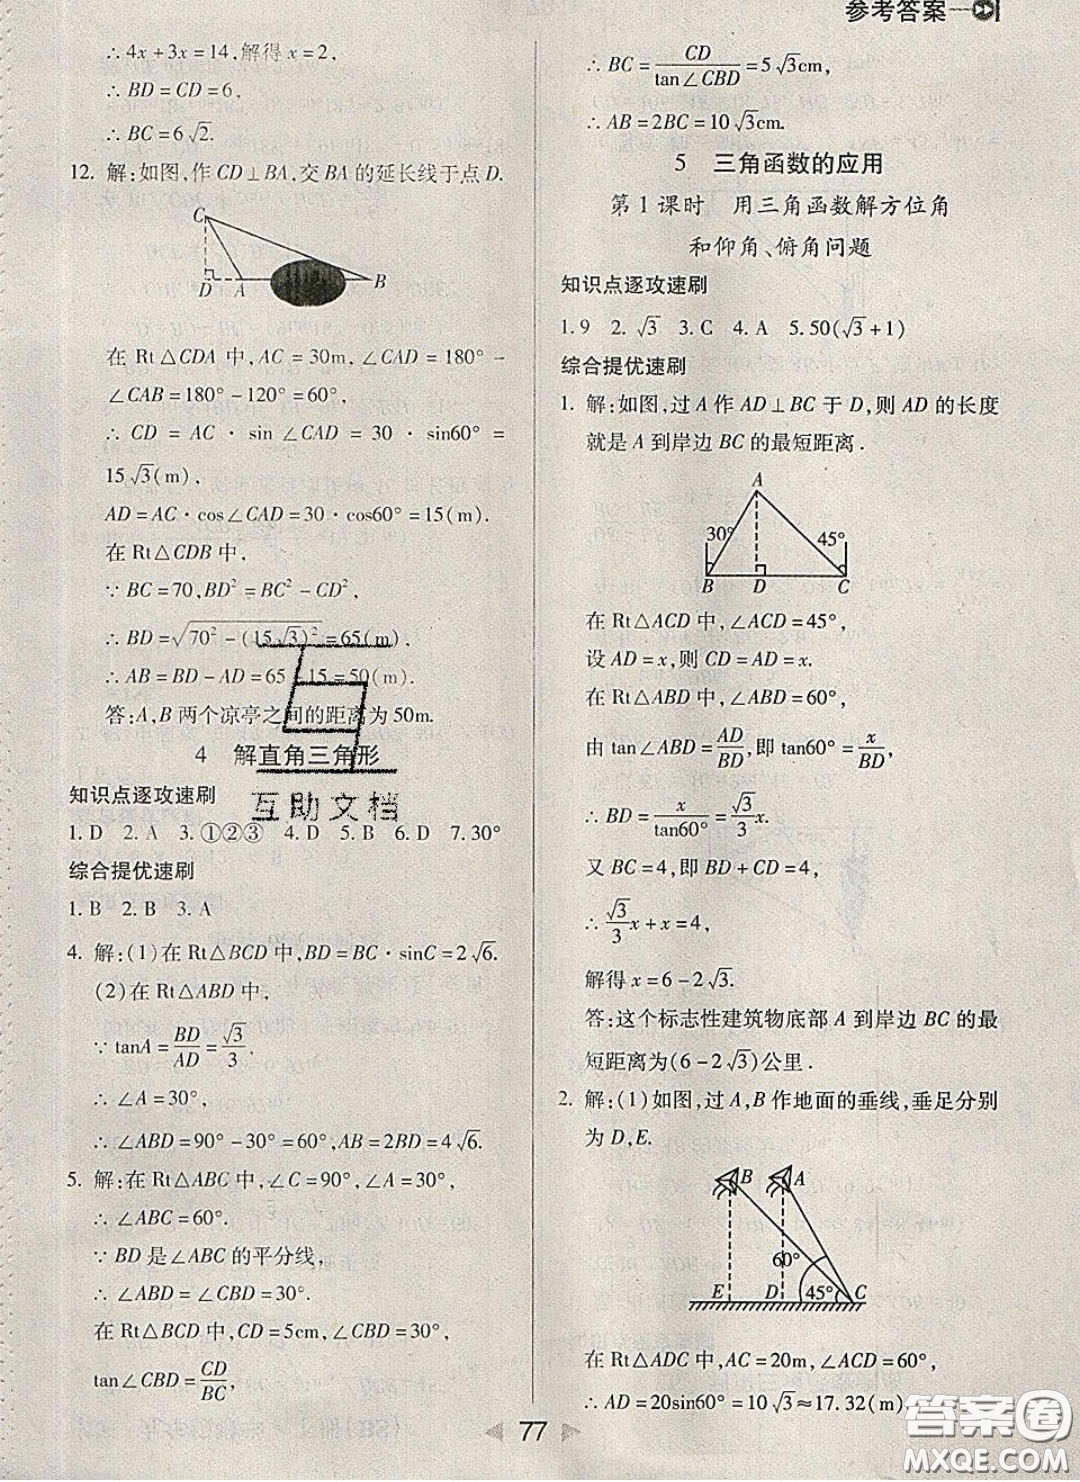 参考答案
∴4x+3x=14,解得x=2,
∴BD=CD=6,
∴BC=6√2.
12. 解:如图,作CD⊥BA,交BA的延长线于点D.
C
D A B
在Rt△CDA中,AC=30m,∠CAD=180°-
∠CAB=180°-120°=60°,
∴CD=AC·sin∠CAD=30·sin60°=
15√3(m),
AD=AC·cos∠CAD=30·cos60°=15(m).
在Rt△CDB中,
∵BC=70,BD²=BC²-CD²,
∴BD=√(70²-(15√3)²)=65(m),
∴AB=BD-AD=65-15=50(m).
答:A,B两个凉亭之间的距离为50m.
4 解直角三角形
知识点逐攻速刷
互助文档
1. D 2. A 3. ①②③ 4. D 5. B 6. D 7. 30°
综合提优速刷
1. B 2. B 3. A
4. 解:(1)在Rt△BCD中,BD=BC·sinC=2√6.
(2)在Rt△ABD中,
∵tanA=BD/AD=√3/3.
∴∠A=30°,
∴∠ABD=90°-30°=60°,AB=2BD=4√6.
5. 解:在Rt△ABC中,∠C=90°,∠A=30°,
∴∠ABC=60°.
∵BD是∠ABC的平分线,
∴∠ABD=∠CBD=30°.
在Rt△BCD中,CD=5cm,∠CBD=30°,
tan∠CBD=CD/BC,
∴BC=CD/tan∠CBD=5√3cm,
∴AB=2BC=10√3cm.
5 三角函数的应用
第1课时 用三角函数解方位角
和仰角、俯角问题
知识点逐攻速刷
1. 9 2. √3 3. C 4. A 5. 50(√3+1)
综合提优速刷
1. 解:如图,过A作AD⊥BC于D,则AD的长度
就是A到岸边BC的最短距离.
A
30° 45°
B D C
在Rt△ACD中,∠ACD=45°,
设AD=x,则CD=AD=x.
在Rt△ABD中,∠ABD=60°,
由tan∠ABD=AD/BD,即tan60°=x/BD,
∴BD=x/tan60°=√3/3x.
又BC=4,即BD+CD=4,
∴√3/3x+x=4,
解得x=6-2√3.
答:这个标志性建筑物底部A到岸边BC的最
短距离为(6-2√3)公里.
2. 解:(1)如图,过A,B作地面的垂线,垂足分别
为D,E.
B A
60°
E D 45° C
在Rt△ADC中,AC=20m,∠ACD=60°,
∴AD=20sin60°=10√3≈17.32(m),
77
答案圈
MXQE.COM